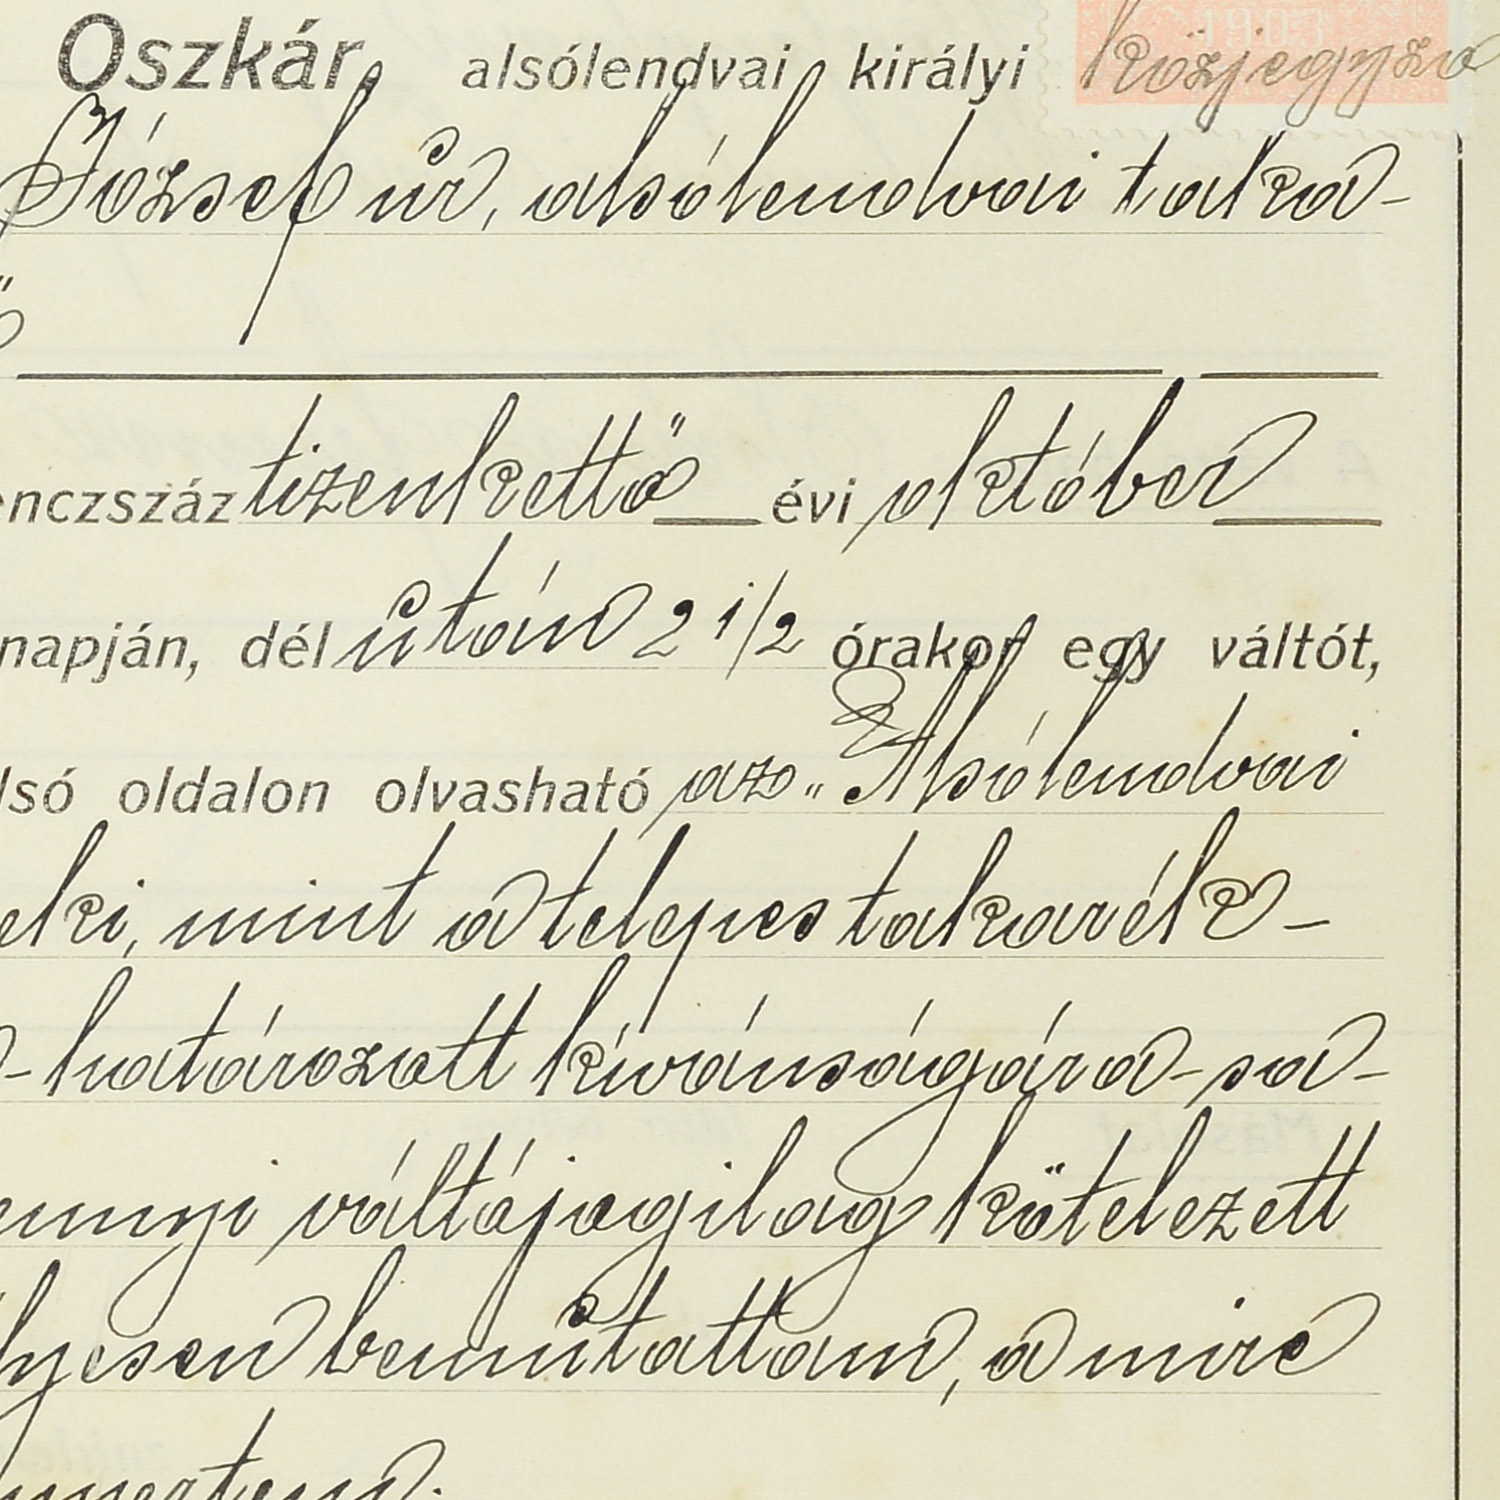 Oszkár alsólendvai királyi közjegyző
József úr, alsólendvai taka-
enczszáz tizenkettő évi október
napján, dél után 2 1/2 órakor egy váltót,
lsó oldalon olvasható az „Alsólendvai
eki, mint a telepes takarék-
-határozott kívánságára-sa-
ennyi váltójogilag kötelezett
lyesen bemutattam, a mire